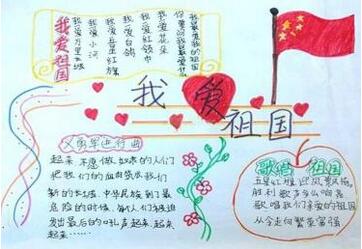 我爱祖国
我最爱我的祖国
你要问我最爱什么
我爱花朵
我爱红领巾
我爱白鸽
我爱五星红旗
我爱小河
我爱万里长城
我 爱
祖国
义勇军进行曲
起来 不愿做奴隶的人们
把我们的血肉筑成我们
新的长城 中华民族到了最
危险的时候，每个人们被迫
发出最后的吼声起来 起来
起来……
歌唱 祖国
五星红旗迎风飘扬
胜利歌声多么响亮
歌唱我们亲爱的祖国
从今走向繁荣富强